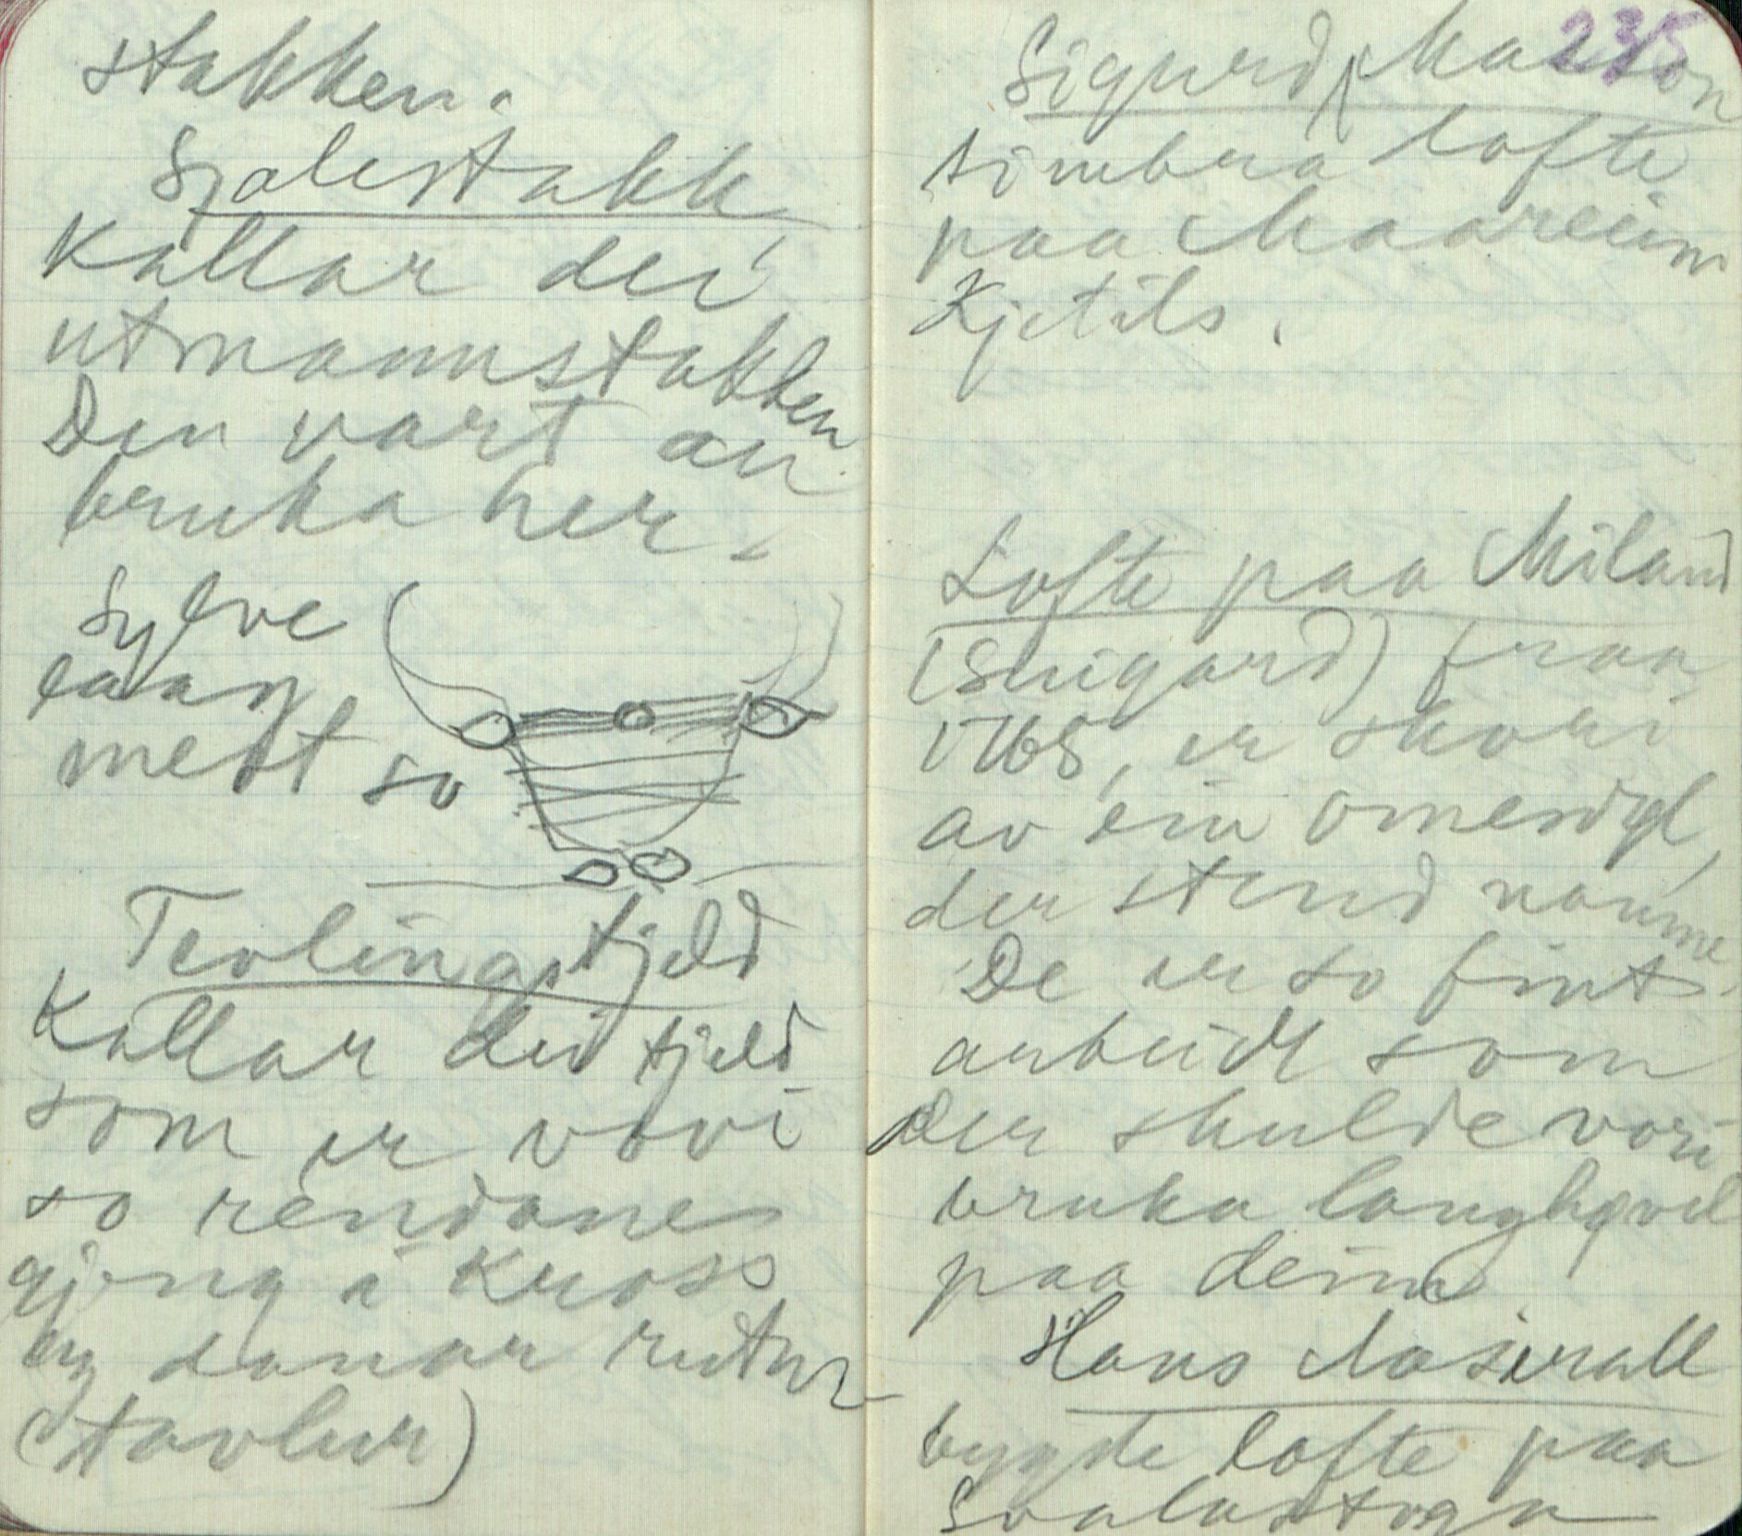 stakken.
Spolestakk
kallar dei
utmannstakken
Den vart au
bruka her.
Sylve
laag
medt so
Tevlingstjeld
kallar dei tjeld
som er vovi
so rendane
gjeng i kross
og danar rutur
(tavlur)
235
Sigurd
timbra lofte
paa Maareim
Kjetils.
Lofte paa Miland
(Suigard) fraa
1768, er skori
av ein omendyl,
der stend namne
De er so fint
arbeidt som
der skulde vori
bruka langhøvel
paa deim.
Hans
bygde lofte paa
Svalastoga